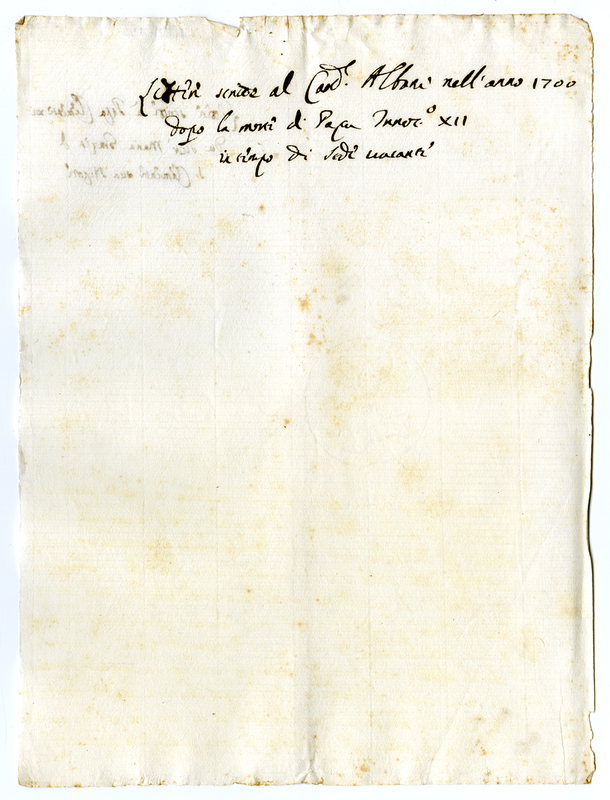 Lettere scritte al Card.l Albani nell'anno 1700
dopo la morte di Papa Innoc.o XII
in tempo di sede vacante